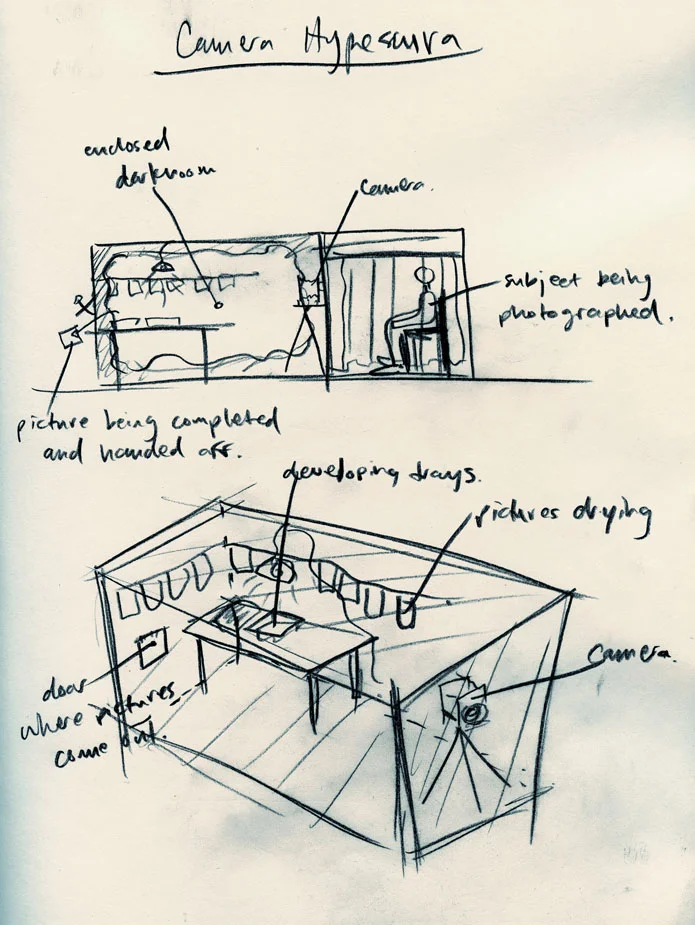 Camera Hypescura
enclosed
darkroom
camera.
subject being
photographed.
picture being completed
and handed off.
developing trays.
pictures drying
camera.
door
where pictures
come out.